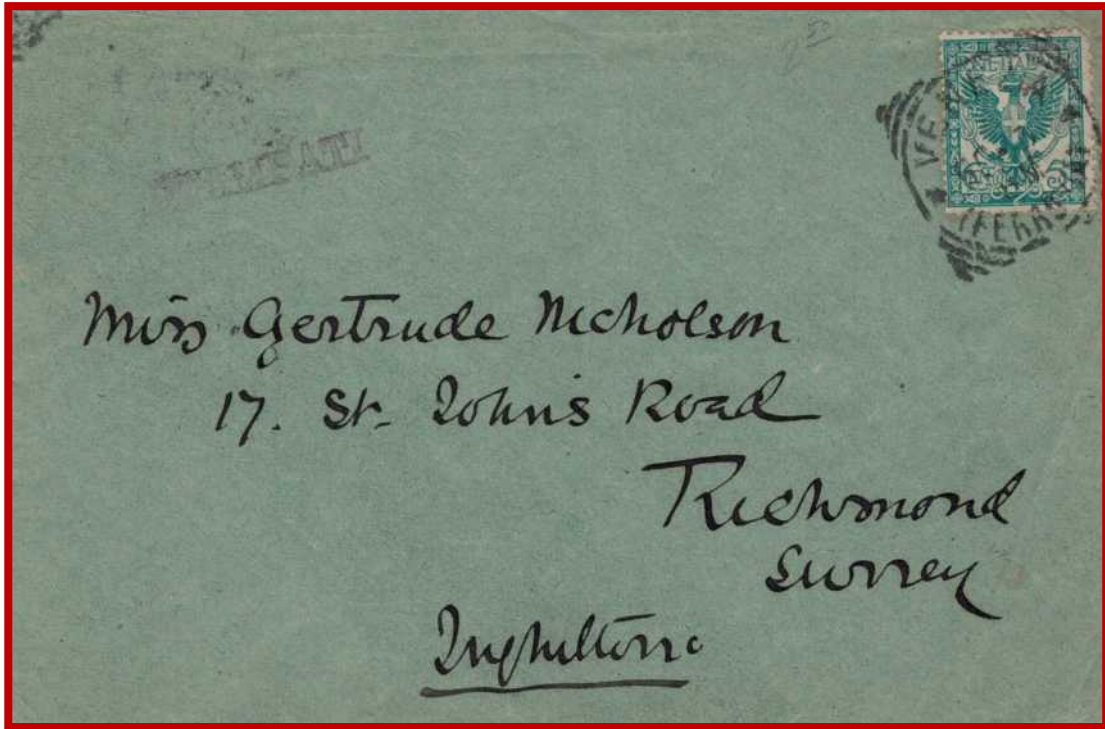 2 50
VENEZIA
(FERROVIA)
Miss Gertrude Nicholson
17. St. John's Road
Richmond
Surrey
Inghilterra